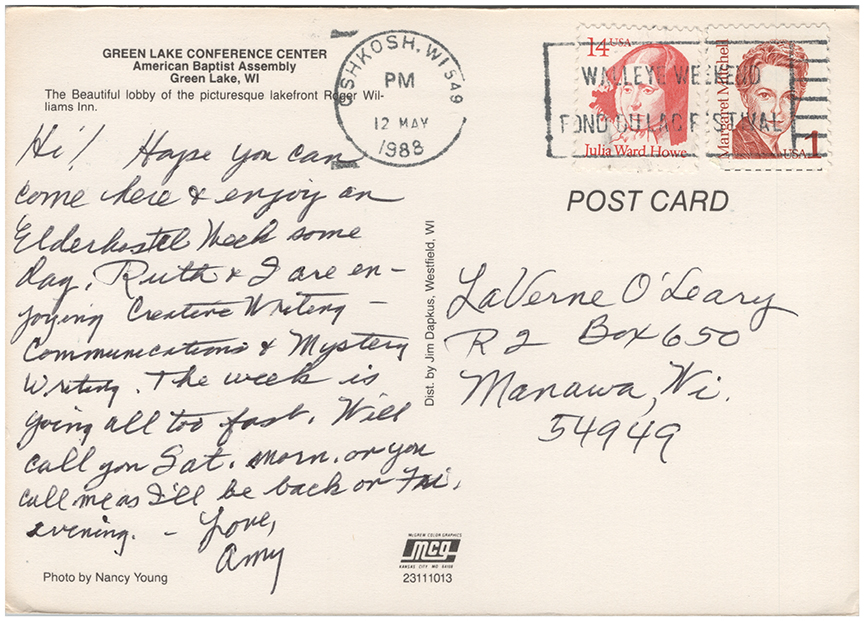 GREEN LAKE CONFERENCE CENTER
American Baptist Assembly
Green Lake, WI
The Beautiful lobby of the picturesque lakefront Roger Wil-
liams Inn.
Hi! Hope you can
come here & enjoy an
Elderhostel Week some
day. Ruth & I are en-
joying Creative Writing –
Communications & Mystery
Writing. The week is
going all too fast. Will
call you Sat. morn. or you
call me as I'll be back on Fri.
evening. – Love,
Amy
Photo by Nancy Young
Dist. by Jim Dapkus, Westfield, WI
McGREW COLOR GRAPHICS
mcg
KANSAS CITY, MO 64108
23111013
OSHKOSH, WI 549
PM
12 MAY
1988
WALLEYE WEEKEND
FOND DU LAC FESTIVAL
14 USA
Julia Ward Howe
Margaret Mitchell
USA 1
POST CARD
LaVerne O'Leary
R 2 Box 650
Manawa, Wi.
54949